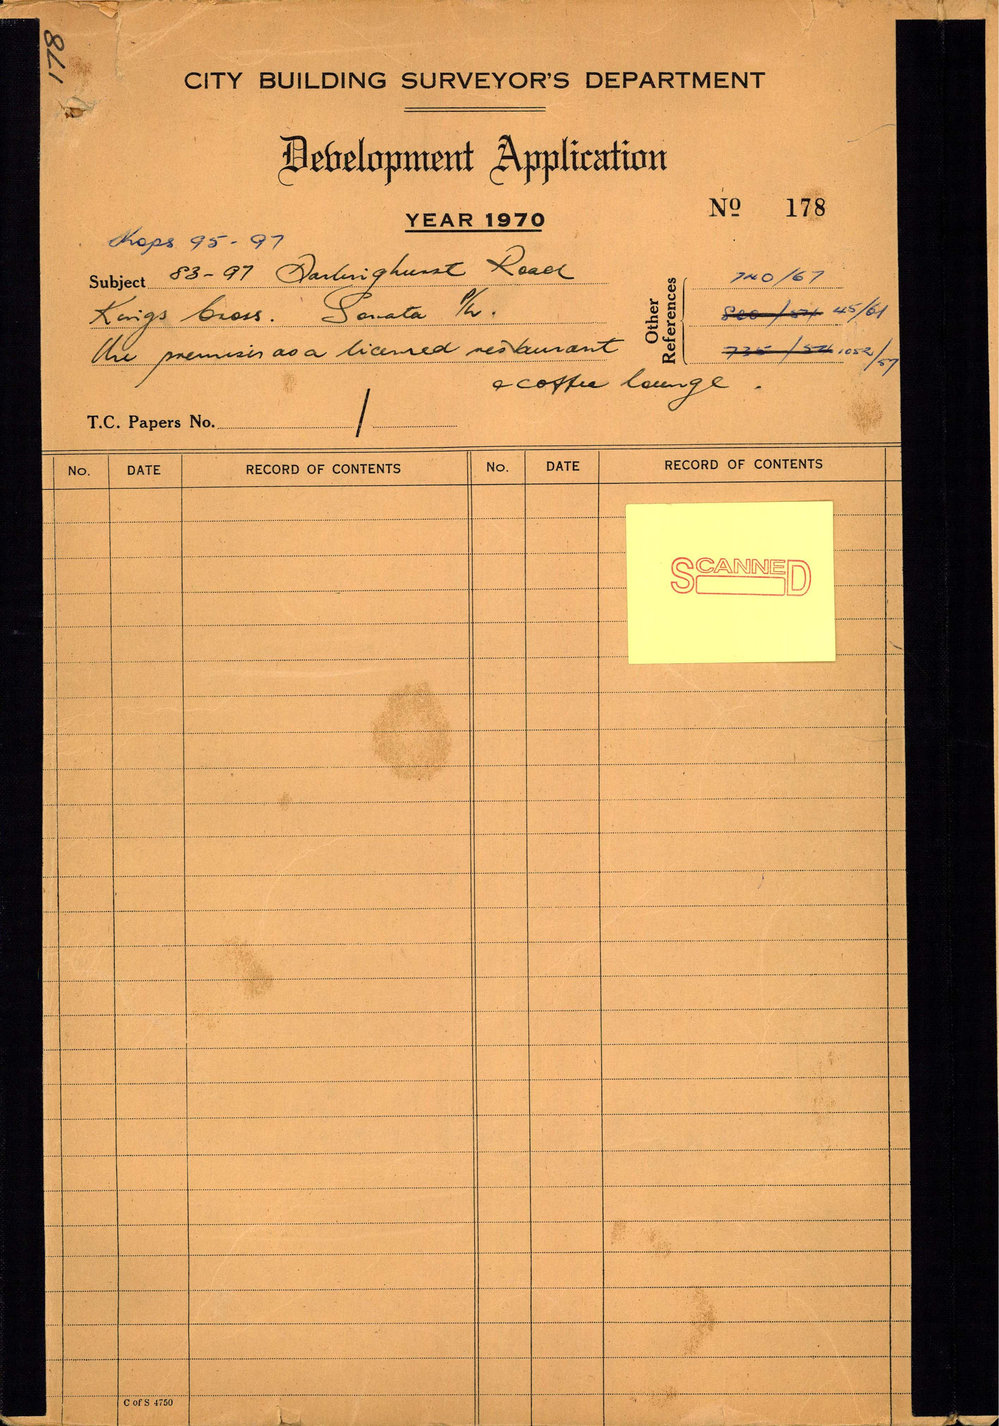 178
CITY BUILDING SURVEYOR'S DEPARTMENT
Development Application
YEAR 1970
Nº 178
shops 95-97
Subject 83-97 Darlinghurst Road
Kings Cross. Sonata P/L.
Use premises as a licensed restaurant
& coffee lounge.
Other References
740/67
45/61
1052/57
T.C. Papers No. /
No. DATE RECORD OF CONTENTS No. DATE RECORD OF CONTENTS
SCANNED
C of S 4750